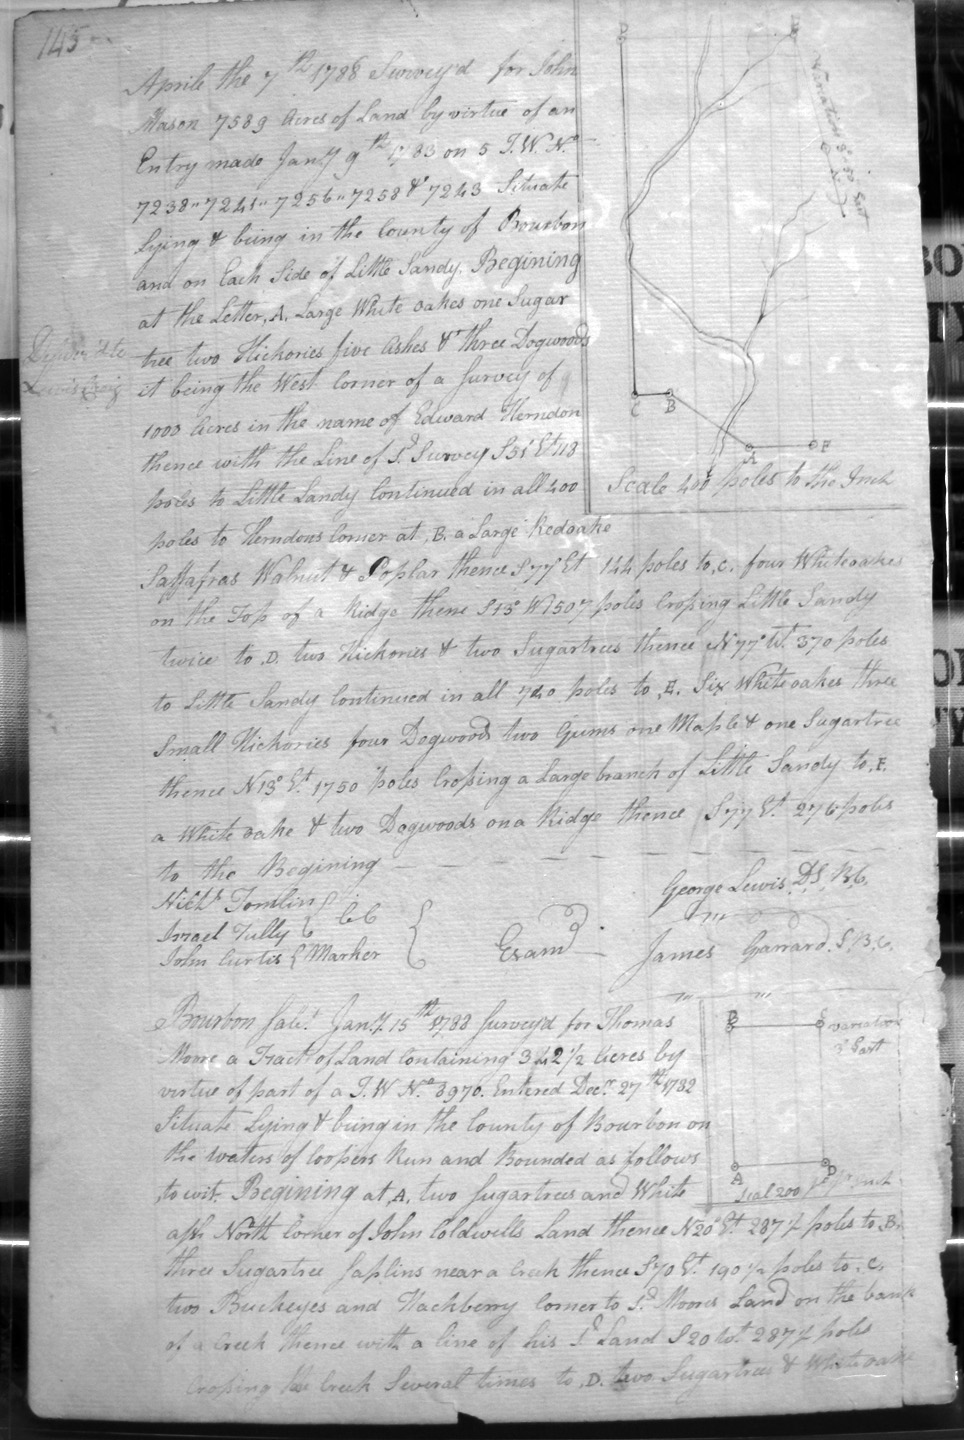 145
Aprile the 7th 1788 Survey'd for John
Mason 7589 Acres of Land by virtue of an
Entry made Jany 9th 1783 on 5 T.W. No
7238" 7241" 7256" 7258 & 7243 Situate
Lying & being in the County of Bourbon
and on Each Side of Little Sandy. Begining
at the Letter, A. Large White oakes one Sugar
tree two Hickories five Ashes & three Dogwoods
it being the West Corner of a Survey of
1000 Acres in the name of Edward Herndon
thence with the Line of Sd Survey S51° Et 118
poles to Little Sandy Continued in all 400
poles to Herndons Corner at, B. a Large Redoake
Sassafras Walnut & Poplar thence S77° Et 144 poles to, C. four Whiteoakes
on the Top of a Ridge thene S13° W 1507 poles Crossing Little Sandy
twice to D. two Hickories & two Sugartrees thence N77° Wt 370 poles
to Little Sandy Continued in all 740 poles to, E. Six Whiteoakes three
Small Hickories four Dogwoods two Gums one Maple & one Sugartree
thence N13° Et 1750 poles Crossing a Large branch of Little Sandy to, F.
a White oake & two Dogwoods on a Ridge thence S77 Et 276 poles
to the Begining
George Lewis DS, B.C.
Nichs Tomlin
Israel Tully } CC
John Curtis { Marker
Examd
James Garrard. S.B.C.
Deliver'd to
Lewis Craig
D
E
Variation
C
B
A
F
Scale 400 poles to the Inch
Bourbon Sct Jany 15th 1788 Survey'd for Thomas
Moore a Tract of Land Containing 342 1/2 Acres by
virtue of part of a T.W No 3970. Entered Decr 27th 1782
Situate Lying & being in the County of Bourbon on
the waters of Coopers Run and Bounded as follows
to wit. Begining at, A. two Sugartrees and White
ash North Corner of John Coldwells Land thence N20° Et 287 1/2 poles to, B.
three Sugartree Saplins near a Creek thence S70 Et 190 1/2 poles to, C.
two Buckeyes and Hackberry Corner to Sd Moores Land on the bank
of a Creek thence with a line of his Sd Land S20 Wt 287 1/2 poles
Crossing the Creek Several times to, D. two Sugartrees & Whiteoake
B
C
variation
3° East
A
D
Scal 200 Inch